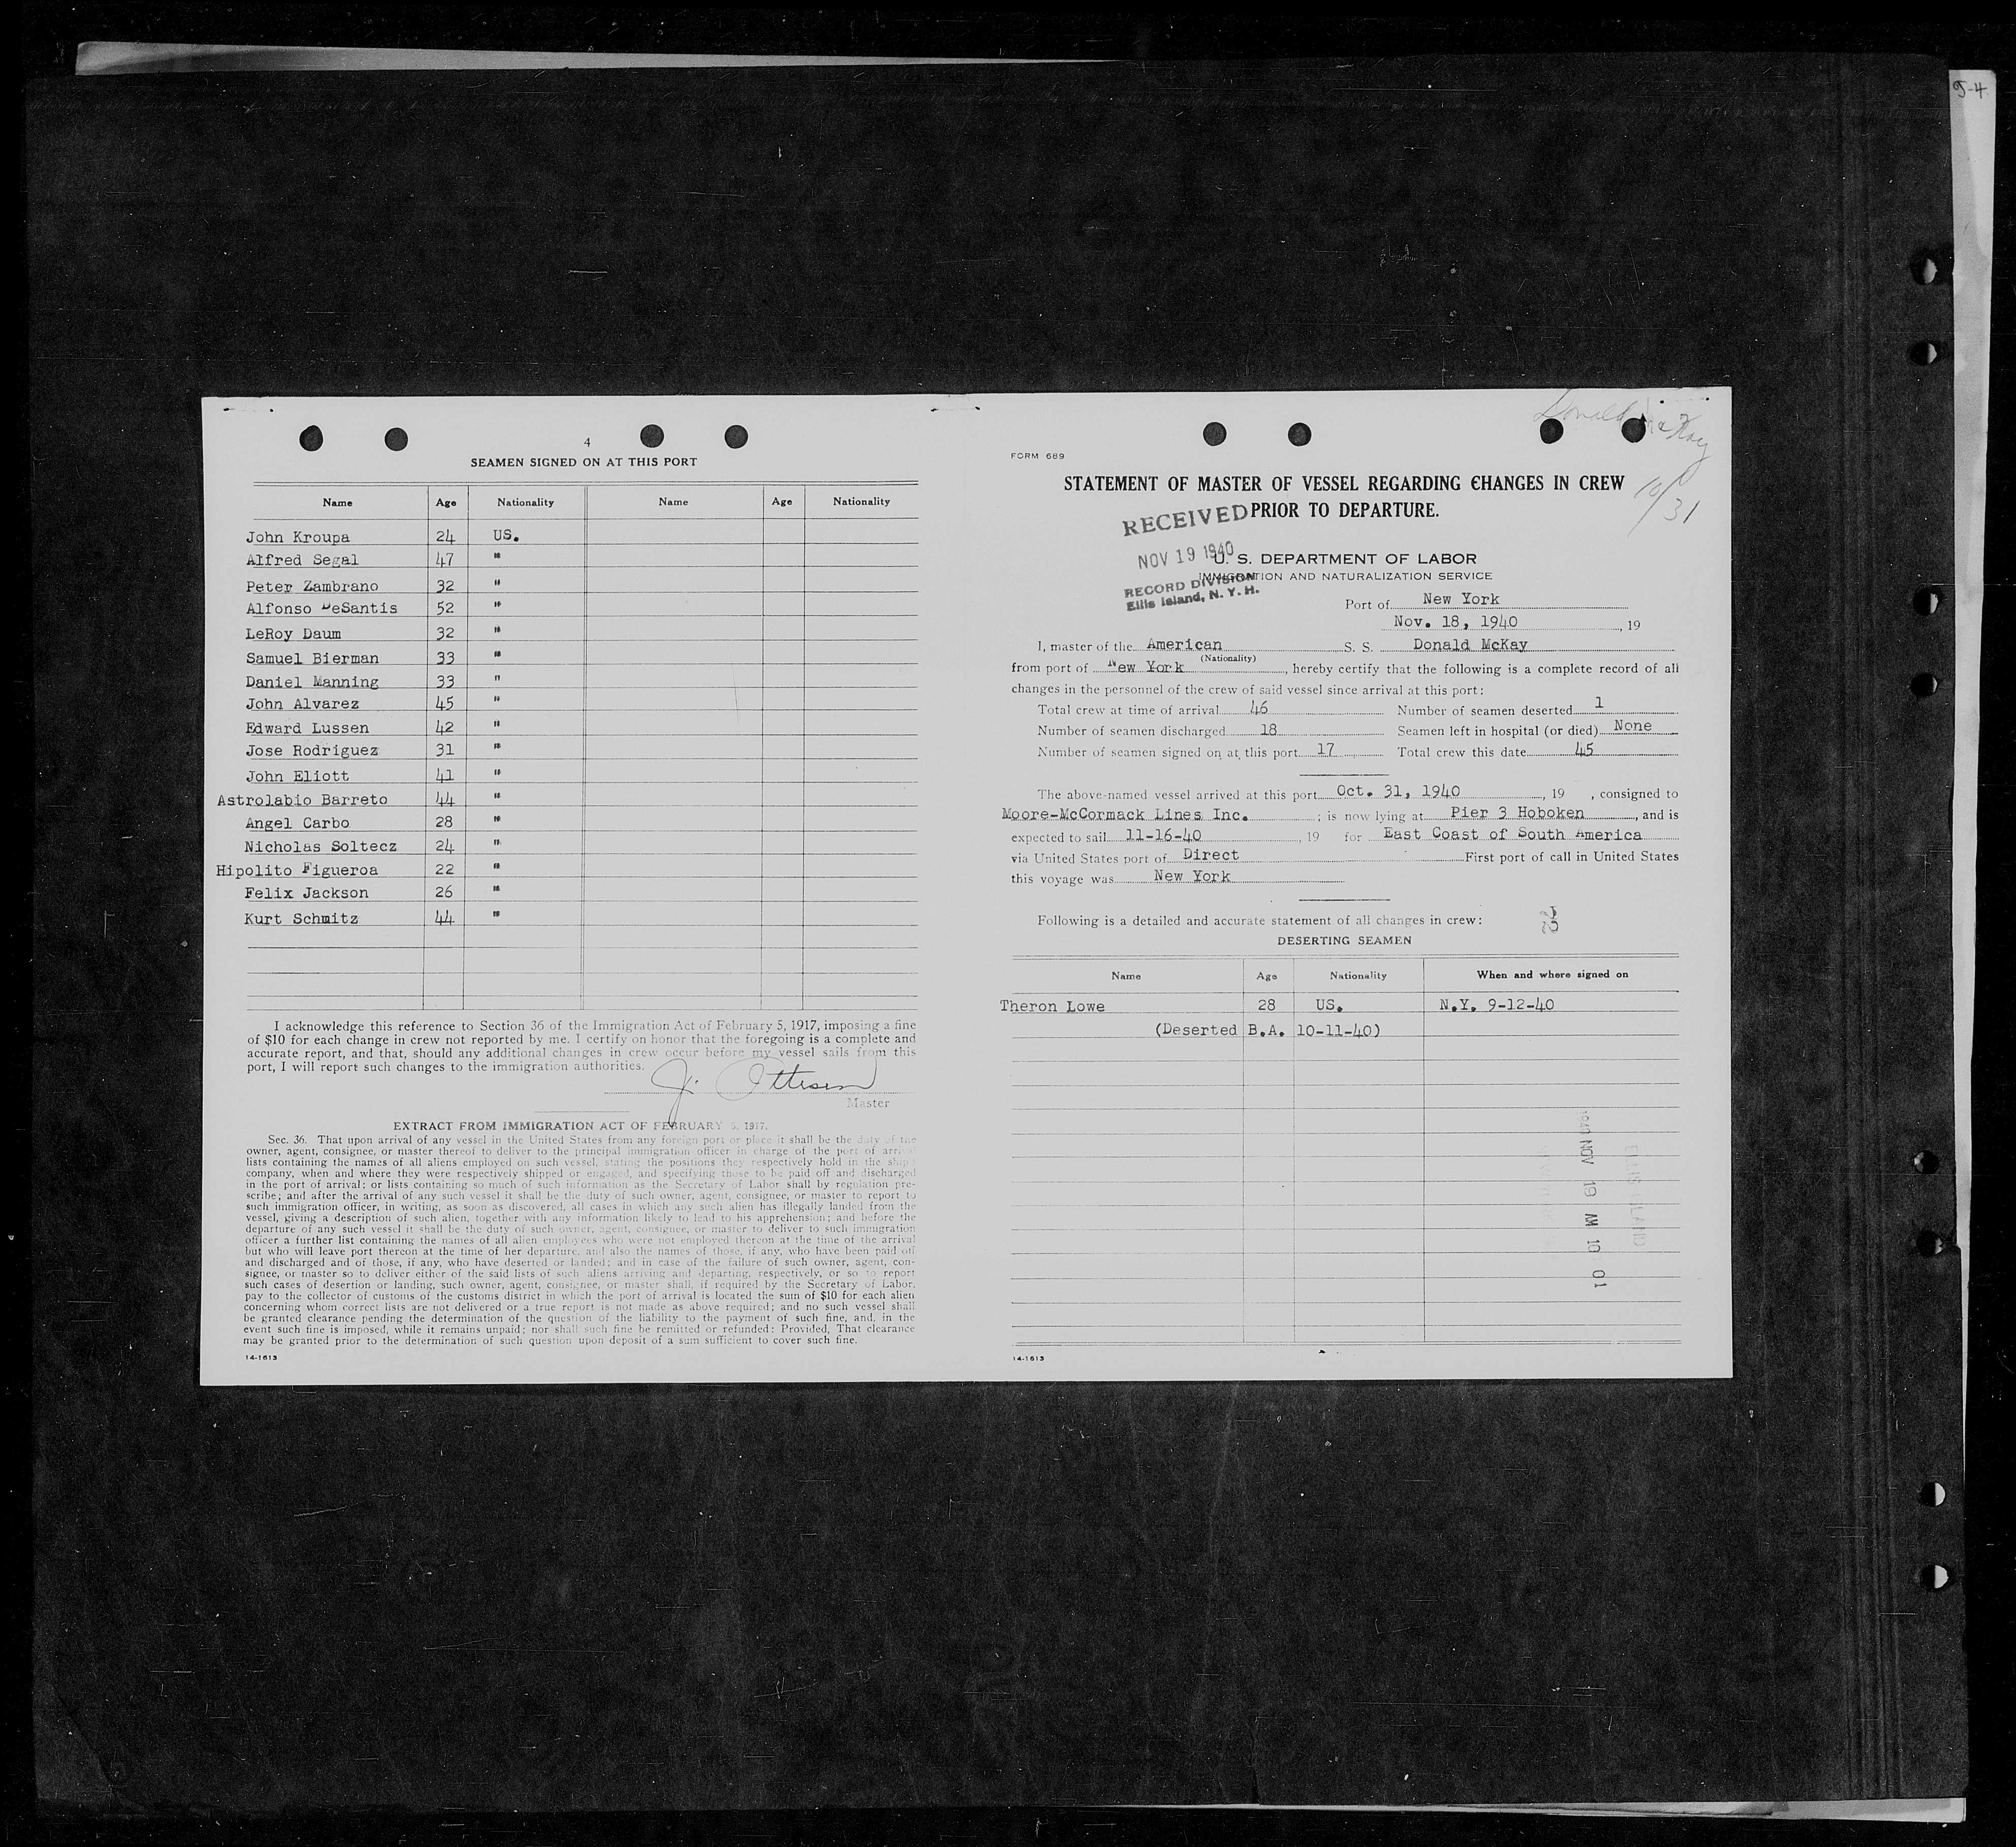 4
SEAMEN SIGNED ON AT THIS PORT
Name Age Nationality Name Age Nationality
John Kroupa 24 US.
Alfred Segal 47 "
Peter Zambrano 32 "
Alfonso DeSantis 52 "
LeRoy Daum 32 "
Samuel Bierman 33 "
Daniel Manning 33 "
John Alvarez 45 "
Edward Lussen 42 "
Jose Rodriguez 31 "
John Eliott 41 "
Astrolabio Barreto 44 "
Angel Carbo 28 "
Nicholas Soltecz 24 "
Hipolito Figueroa 22 "
Felix Jackson 26 "
Kurt Schmitz 44 "
I acknowledge this reference to Section 36 of the Immigration Act of February 5, 1917, imposing a fine
of $10 for each change in crew not reported by me. I certify on honor that the foregoing is a complete and
accurate report, and that, should any additional changes in crew occur before my vessel sails from this
port, I will report such changes to the immigration authorities.
J. Ottesen
Master
EXTRACT FROM IMMIGRATION ACT OF FEBRUARY 5, 1917.
Sec. 36. That upon arrival of any vessel in the United States from any foreign port or place it shall be the duty of the
owner, agent, consignee, or master thereof to deliver to the principal immigration officer in charge of the port of arrival
lists containing the names of all aliens employed on such vessel, stating the positions they respectively hold in the ship's
company, when and where they were respectively shipped or engaged, and specifying those to be paid off and discharged
in the port of arrival; or lists containing so much of such information as the Secretary of Labor shall by regulation pre-
scribe; and after the arrival of any such vessel it shall be the duty of such owner, agent, consignee, or master to report to
such immigration officer, in writing, as soon as discovered, all cases in which any such alien has illegally landed from the
vessel, giving a description of such alien, together with any information likely to lead to his apprehension; and before the
departure of any such vessel it shall be the duty of such owner, agent, consignee, or master to deliver to such immigration
officer a further list containing the names of all alien employees who were not employed thereon at the time of the arrival
but who will leave port thereon at the time of her departure, and also the names of those, if any, who have been paid off
and discharged and of those, if any, who have deserted or landed; and in case of the failure of such owner, agent, con-
signee, or master so to deliver either of the said lists of such aliens arriving and departing, respectively, or so to report
such cases of desertion or landing, such owner, agent, consignee, or master shall, if required by the Secretary of Labor,
pay to the collector of customs of the customs district in which the port of arrival is located the sum of $10 for each alien
concerning whom correct lists are not delivered or a true report is not made as above required; and no such vessel shall
be granted clearance pending the determination of the question of the liability to the payment of such fine, and, in the
event such fine is imposed, while it remains unpaid; nor shall such fine be remitted or refunded: Provided, That clearance
may be granted prior to the determination of such question upon deposit of a sum sufficient to cover such fine.
14-1613
5-4
Donald McKay
10/31
FORM 689
STATEMENT OF MASTER OF VESSEL REGARDING CHANGES IN CREW
PRIOR TO DEPARTURE.
RECEIVED
NOV 19 1940
RECORD DIVISION
Ellis Island, N. Y. H.
U. S. DEPARTMENT OF LABOR
IMMIGRATION AND NATURALIZATION SERVICE
Port of New York
Nov. 18, 1940, 19
I, master of the American S. S. Donald McKay
(Nationality)
from port of New York, hereby certify that the following is a complete record of all
changes in the personnel of the crew of said vessel since arrival at this port:
Total crew at time of arrival 46 Number of seamen deserted 1
Number of seamen discharged 18 Seamen left in hospital (or died) None
Number of seamen signed on at this port 17 Total crew this date 45
The above-named vessel arrived at this port Oct. 31, 1940, 19 , consigned to
Moore-McCormack Lines Inc. ; is now lying at Pier 3 Hoboken, and is
expected to sail 11-16-40, 19 for East Coast of South America
via United States port of Direct First port of call in United States
this voyage was New York
Following is a detailed and accurate statement of all changes in crew:
DESERTING SEAMEN
Name Age Nationality When and where signed on
Theron Lowe 28 US. N.Y. 9-12-40
(Deserted B.A. 10-11-40)
1940 NOV 19 AM 10 01
ELLIS ISLAND
14-1613